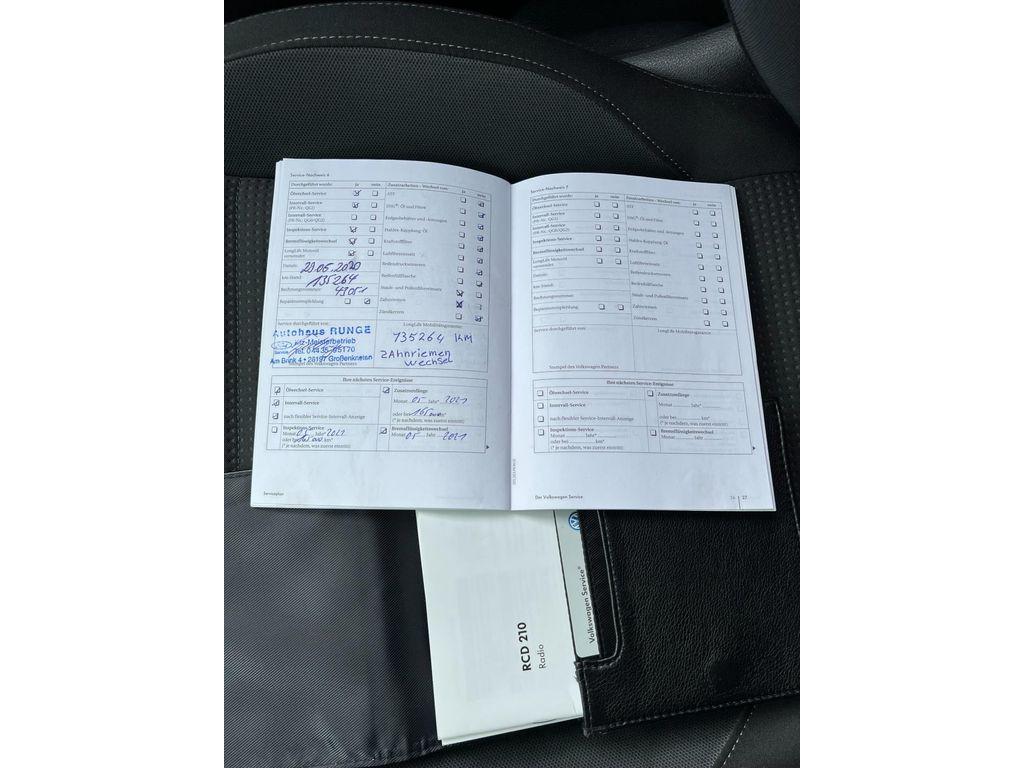 Service-Nachweis 6
Durchgeführt wurde: ja nein
Zusatzarbeiten – Wechsel von: ja nein
Ölwechsel-Service
ATF
Intervall-Service
(PR-Nr. QG1)
DSG®: Öl und Filter
Intervall-Service
(PR-Nr. QG0/QG2)
Inspektions-Service
Haldex-Kupplung: Öl
Bremsflüssigkeitswechsel
Kraftstofffilter
LongLife Motoröl
verwendet
Luftfiltereinsatz
Datum: 29.05.2020
Reifendruckwarndienst
km-Stand: 135264
Reifenfüllflasche
Rechnungsnummer: 43051
Staub- und Pollenfiltereinsatz
Reparaturempfehlung
Zahnriemen
Zündkerzen
Service durchgeführt von:
LongLife Mobilitätsgarantie:
Autohaus RUNGE
Kfz-Meisterbetrieb
Am Brink 4 • 26197 Großenkneten
Stempel des Volkswagen Partners
135264 KM
Zahnriemen
Wechsel
Ihre nächsten Service-Ereignisse
Ölwechsel-Service
Zusatzumfänge
Monat 05 Jahr* 2021
Intervall-Service
nach flexibler Service-Intervall-Anzeige
oder bei 165000 km*
(* je nachdem, was zuerst eintritt)
Inspektions-Service
Monat 05 Jahr* 2021
oder bei km*
(* je nachdem, was zuerst eintritt)
Bremsflüssigkeitswechsel
Monat 05 Jahr 2021
Serviceplan
Service-Nachweis 7
Durchgeführt wurde: ja nein
Zusatzarbeiten – Wechsel von: ja nein
Ölwechsel-Service
ATF
Intervall-Service
(PR-Nr. QG1)
DSG®: Öl und Filter
Intervall-Service
(PR-Nr. QG0/QG2)
Inspektions-Service
Haldex-Kupplung: Öl
Bremsflüssigkeitswechsel
Kraftstofffilter
LongLife Motoröl
verwendet
Luftfiltereinsatz
Datum:
km-Stand:
Reifenfüllflasche
Rechnungsnummer:
Staub- und Pollenfiltereinsatz
Reparaturempfehlung
Zahnriemen
Zündkerzen
Service durchgeführt von:
LongLife Mobilitätsgarantie:
Stempel des Volkswagen Partners
Ihre nächsten Service-Ereignisse
Ölwechsel-Service
Zusatzumfänge
Monat Jahr*
Intervall-Service
nach flexibler Service-Intervall-Anzeige
oder bei km*
(* je nachdem, was zuerst eintritt)
Inspektions-Service
Monat Jahr*
oder bei km*
(* je nachdem, was zuerst eintritt)
Bremsflüssigkeitswechsel
Monat Jahr
Der Volkswagen Service
27
RCD 210
Radio
Volkswagen Service®